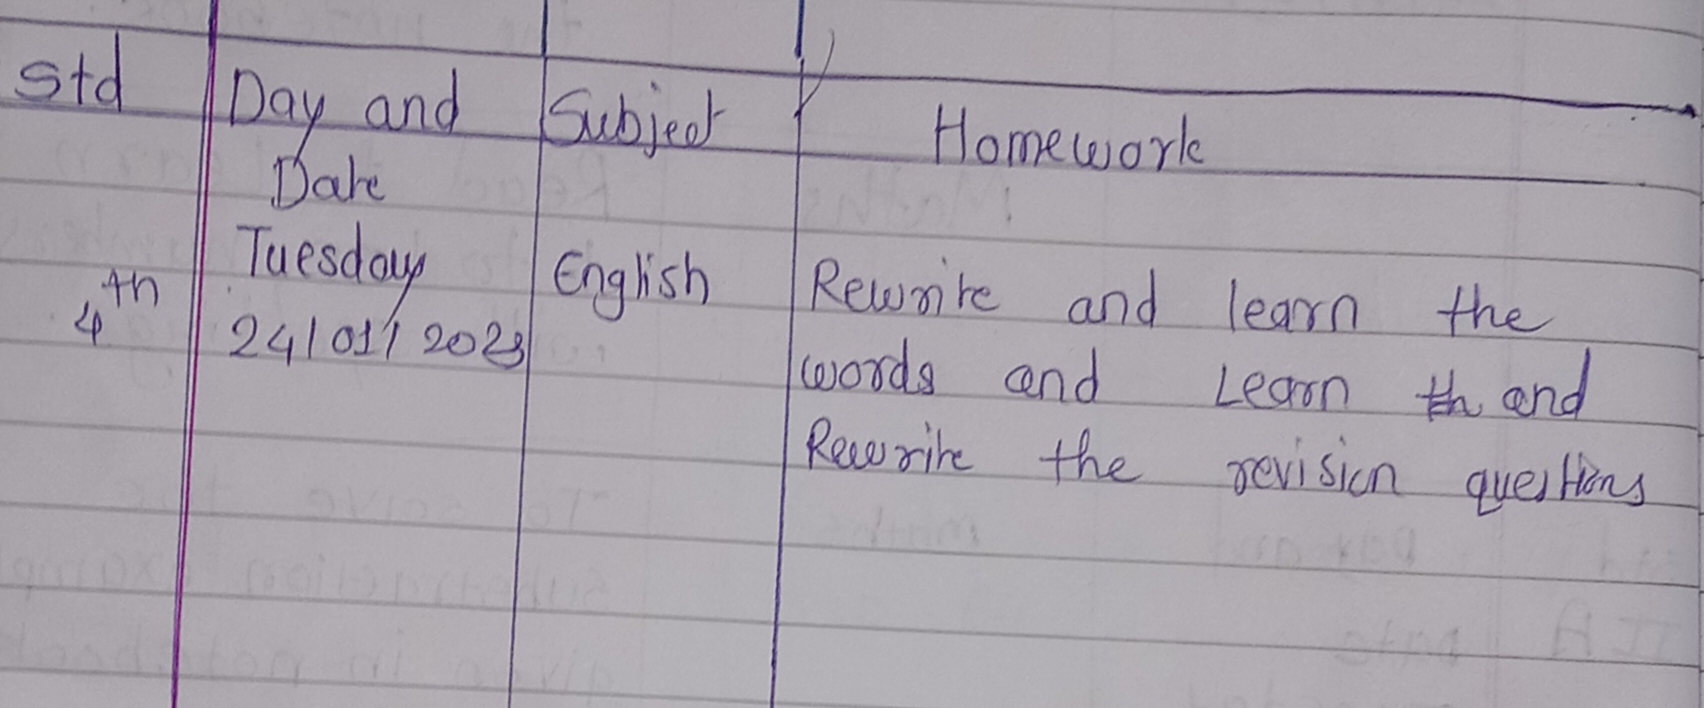 Std Day and Subject Homework
Date
Tuesday English Rewrite and learn the
4th 24/01/2023 words and Learn th and
Rewrite the revision questions